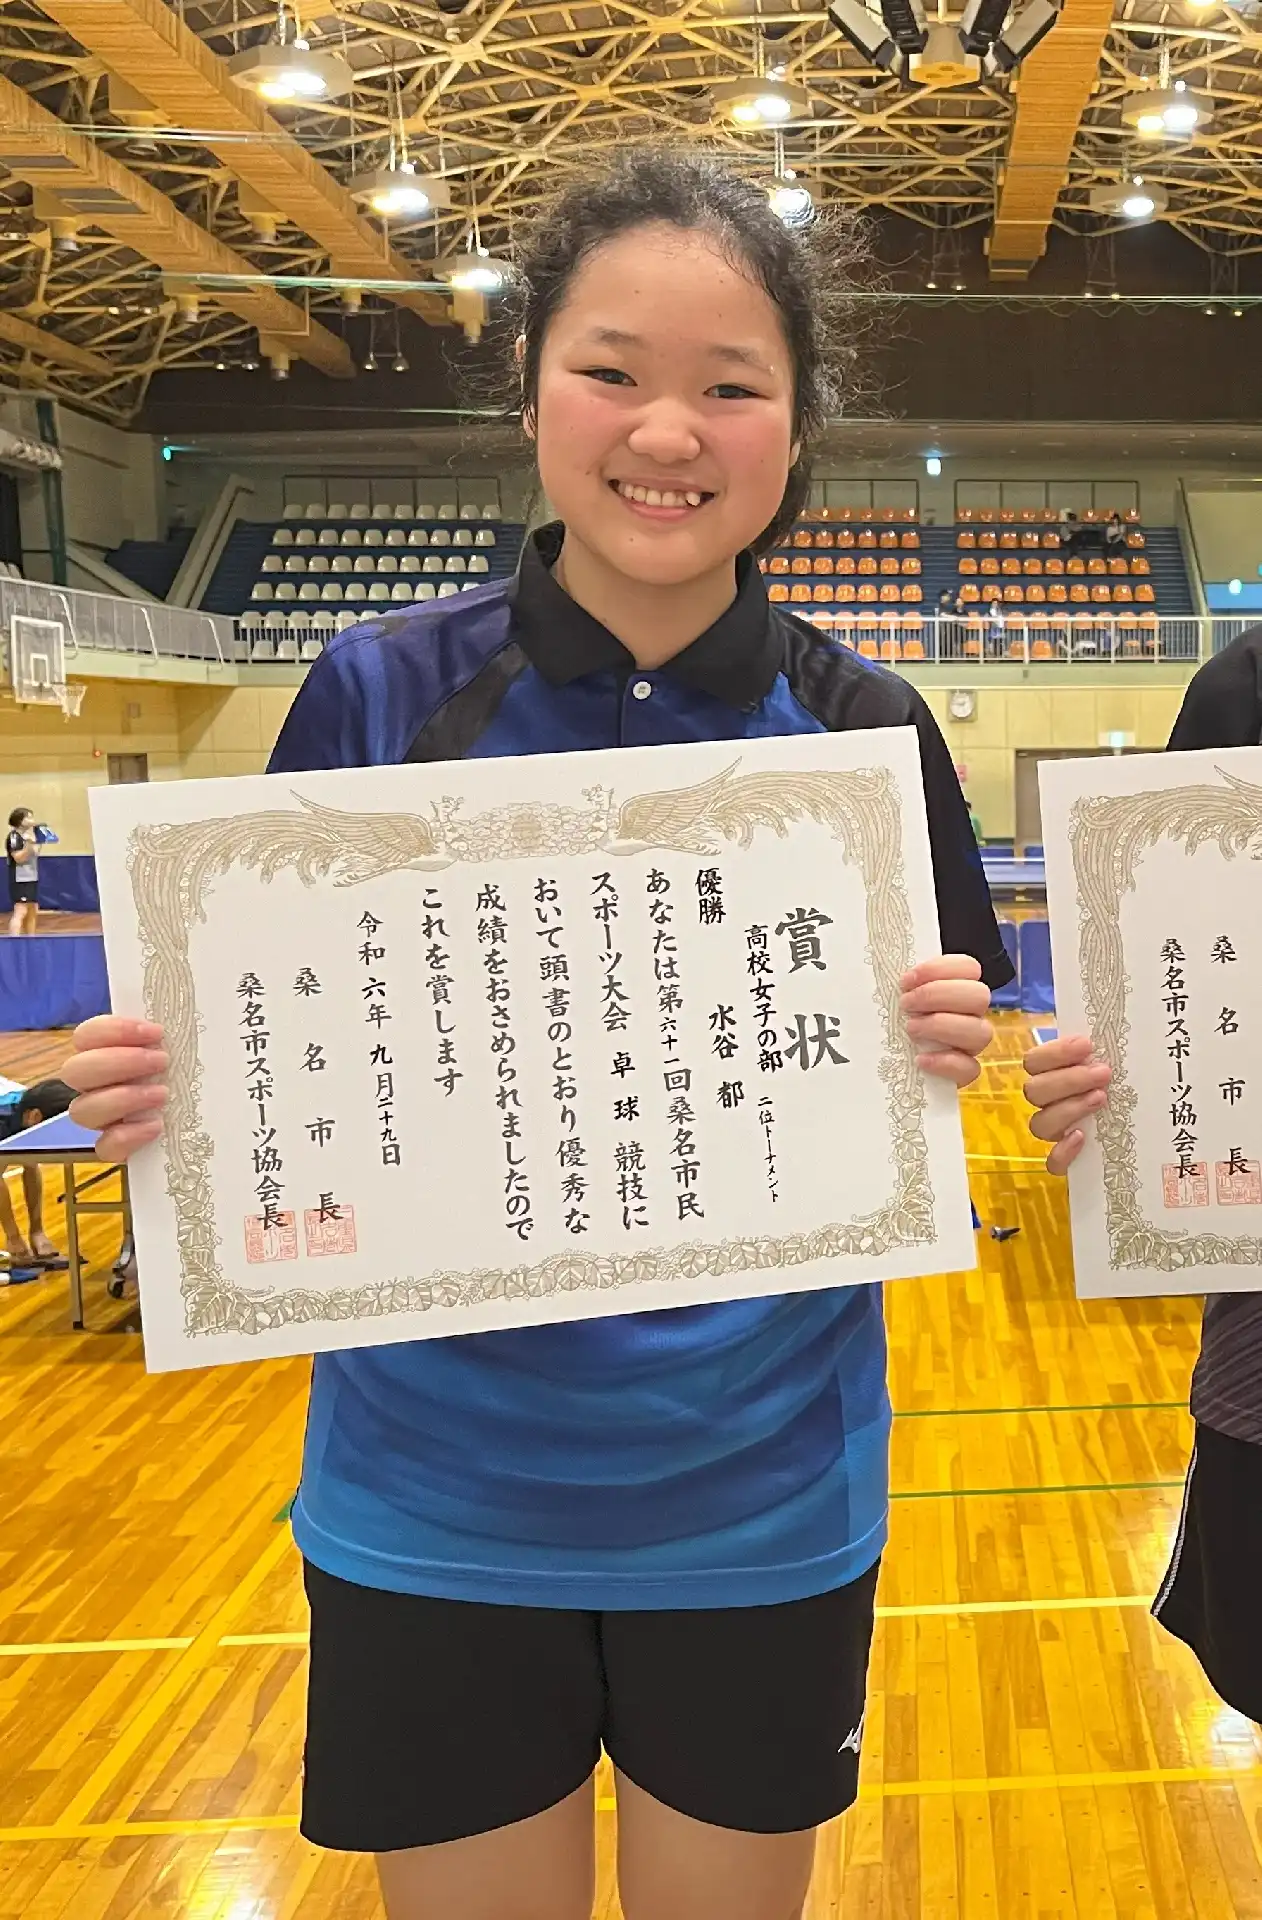 賞状
高校女子の部 二位トーナメント
優勝 水谷 都
あなたは第六十一回桑名市民
スポーツ大会 卓球競技に
おいて頭書のとおり優秀な
成績をおさめられましたので
これを賞します
令和六年九月二十九日
桑名市長
桑名市スポーツ協会長
桑名市長
桑名市スポーツ協会長